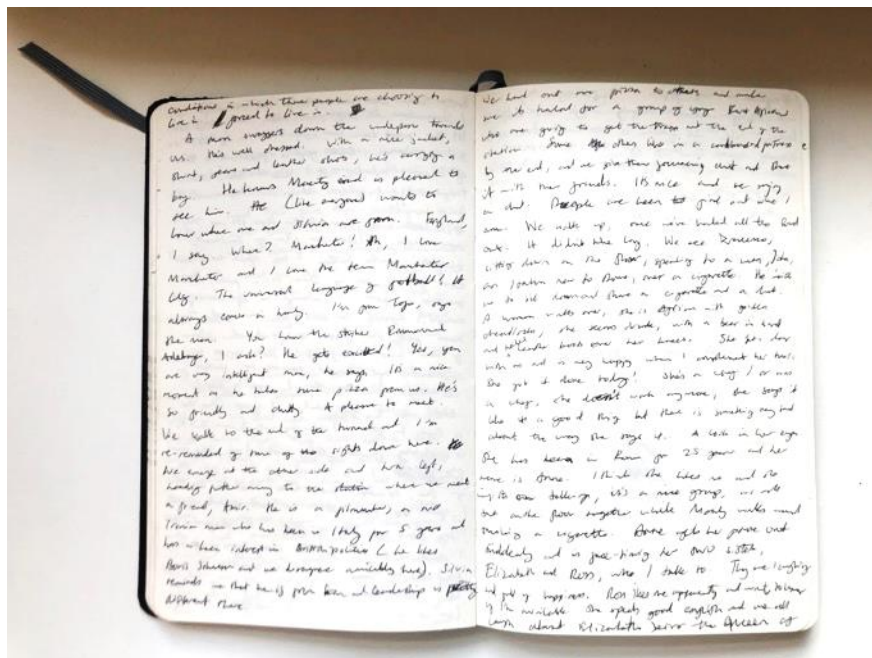 conditions in which these people are choosing to
live in / forced to live in.
A man swaggers down the underpass towards
us. He's well dressed. With a nice jacket,
shirt, jeans and leather shoes, he's carrying a
bag. He knows Monty and is pleased to
see him. He (like everyone) wants to
know where me and Silvia are from. England,
I say. Where? Manchester! Ah, I love
Manchester and I love the team Manchester
City. The universal language of football! It
always comes in handy. I'm from Togo, says
the man. You know the striker Emmanuel
Adebayor, I ask? He gets excited! Yes, you
are very intelligent man, he says. It's a nice
moment as he takes some pizza from us. He's
so friendly and chatty. A pleasure to meet.
We walk to the end of the tunnel and I'm
re-reminded of some of the sights down here.
We emerge at the other side and turn left,
heading further away to the station where we meet
a friend, Amir. He is a, a nice
Iranian man who has been in Italy for 5 years and
has a keen interest in British politics (he likes
Boris Johnson and we disagree amicably here). Silvia
reminds me that he is from Iran and leadership is pretty
different there
We hand out more pizza to others and make
our to for a group of young East African
who are going to get the at the end of the
station. Some others live in a cardboard
by the end, and we give them and share
it with their friends. It's nice and we enjoy
a chat. People are keen to give and were I
am. We walk up, once we've handed all the food
out. It didn't take long. We see,
sitting down on the floor, speaking to a man, John,
an Iranian new to Rome, over a cigarette. He
us to sit down and share a cigarette and a chat.
A woman walks over, she is African with golden
dreadlocks, she seems drunk, with a beer in hand
and leather boots over her knees. She sits down
with us and is very happy when I complement her hair.
She got it done today! She's a chef / or was
a chef, she doesn't work anymore, she says it
like it a good thing but there is something
about the way she says it. A look in her eyes.
She has been in Rome for 25 years and her
name is Anne. I think she likes us and she
, it's a nice group, we sit
on the floor together while Monty walks around
smoking a cigarette. Anne gets her phone out
suddenly and is face-timing her two sisters,
Elizabeth and Rose, who I talk to. They are laughing
and full of happiness. Rose likes me apparently and wants to know
if I'm available. She speaks good english and we all
laugh about Elizabeth being the Queen of